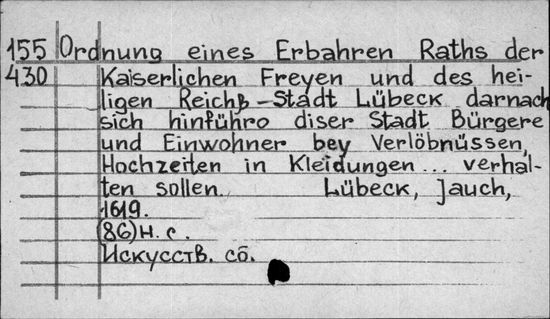 155 Ordnung eines Erbahren Raths der
430 Kaiserlichen Freyen und des hei-
ligen Reichß-Stadt Lübeck darnach
sich hinführo diser Stadt Bürgere
und Einwohner bey Verlöbnüssen,
Hochzeiten in Kleidungen ... verhal-
ten sollen. Lübeck, Jauch,
1619.
(86)н. с.
Искусств. сб.